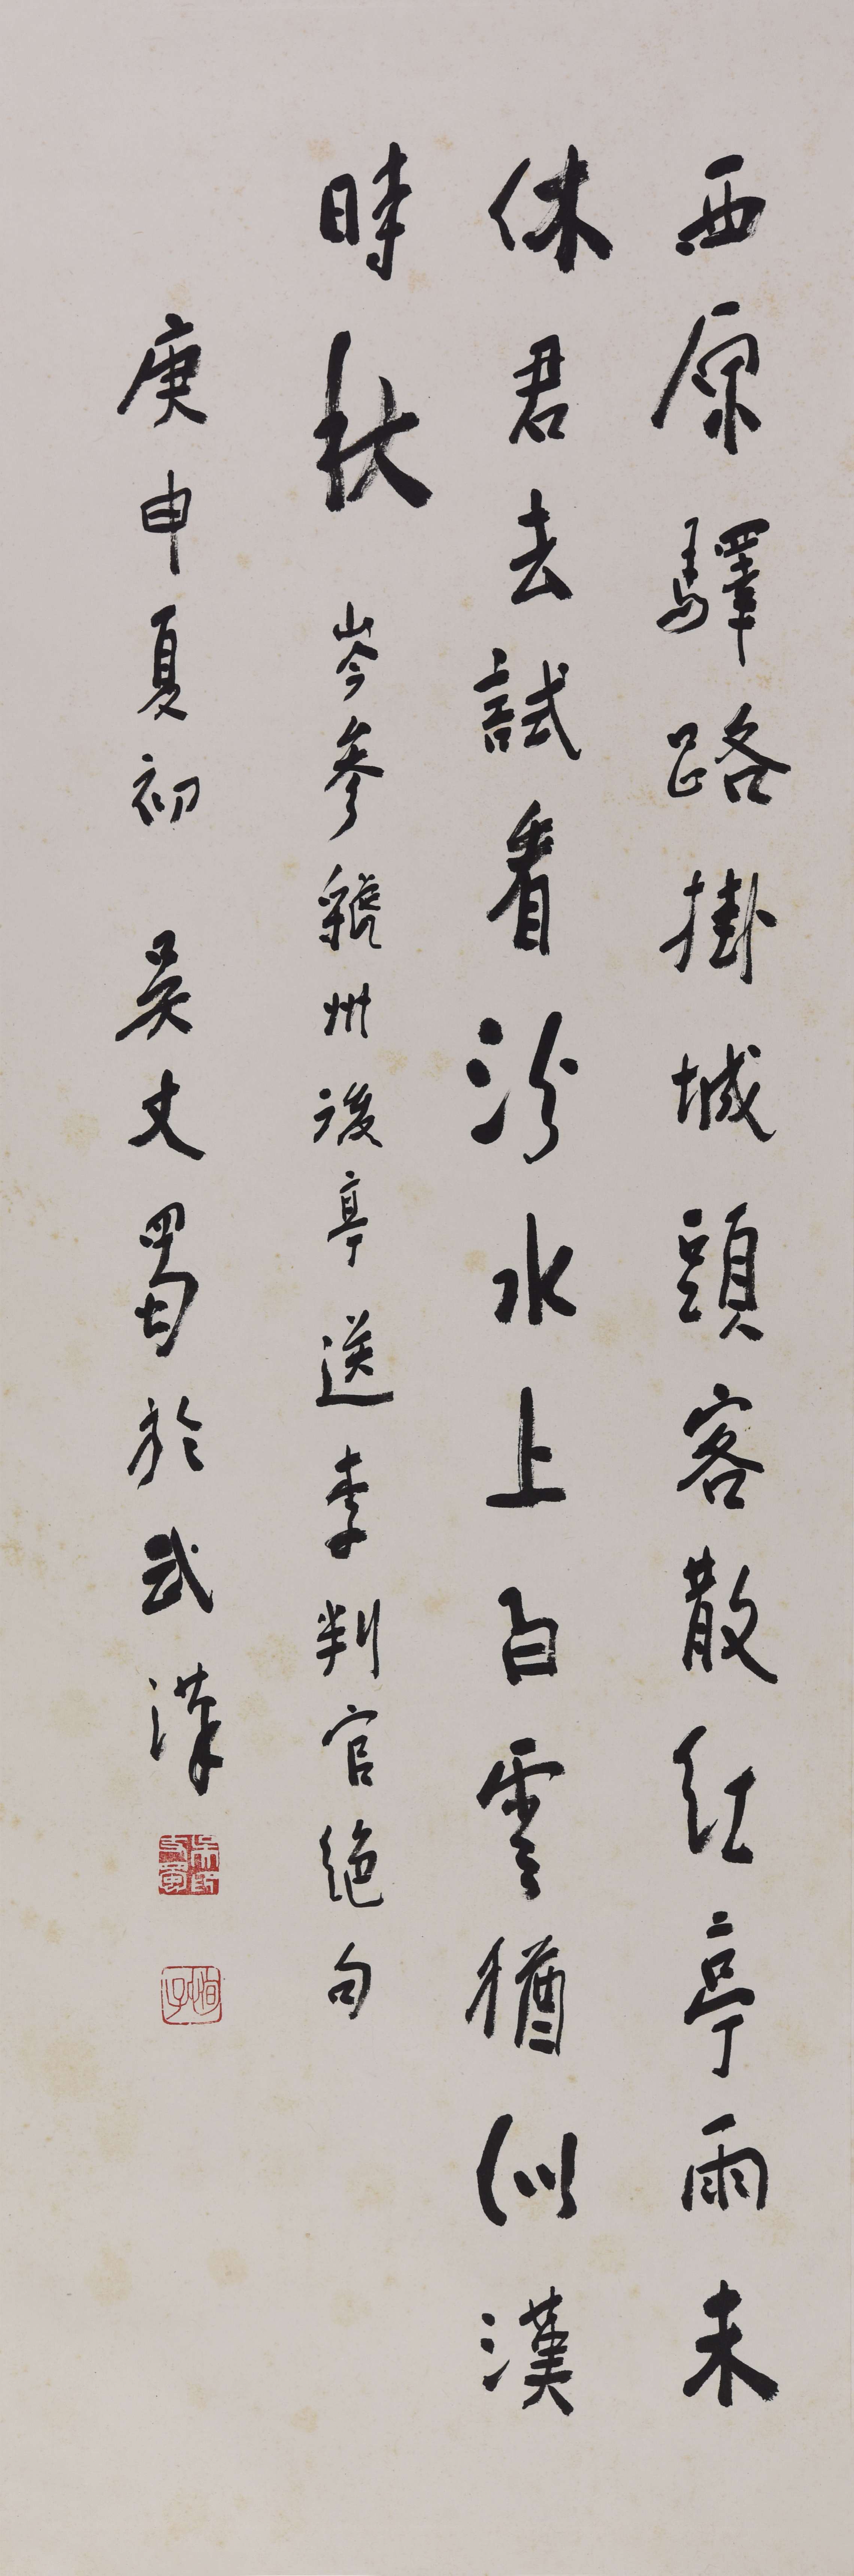 西原驛路掛城頭客散紅亭雨未
休君去試看汾水上白雲猶似漢
時秋 岑參虢州後亭送李判官絕句
庚申夏初 吳丈蜀於武漢
吳丈蜀印
恂子